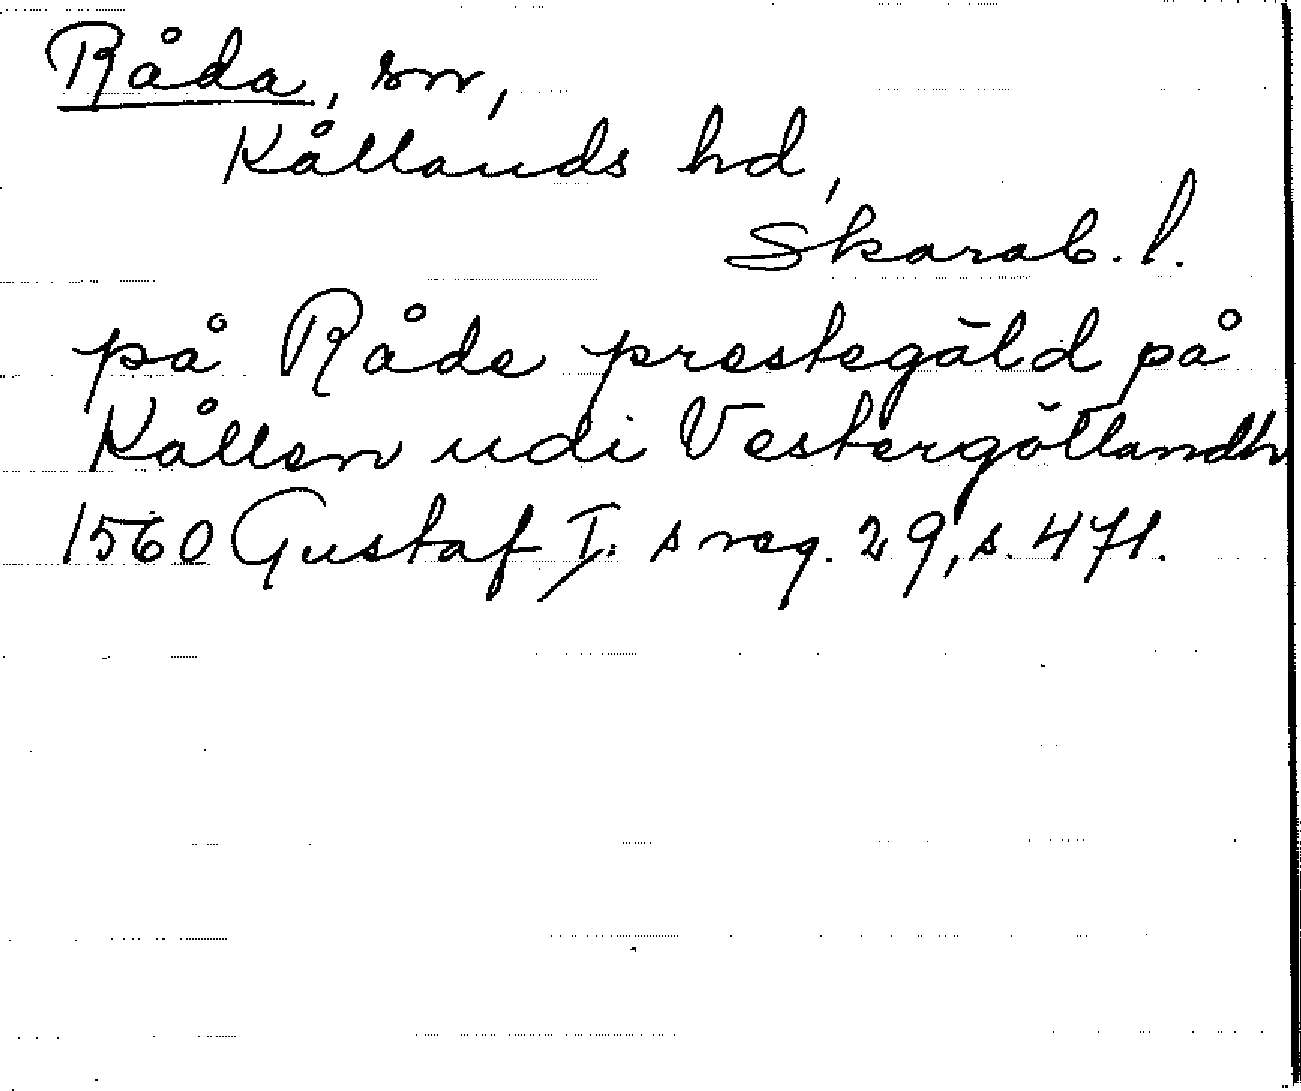 Råda, sn,
Kållands hd,
Skarab. l.
på Råde prestegäld på
Kållen udi Vestergöttlandh
1560 Gustaf I:s reg. 29, s. 471.